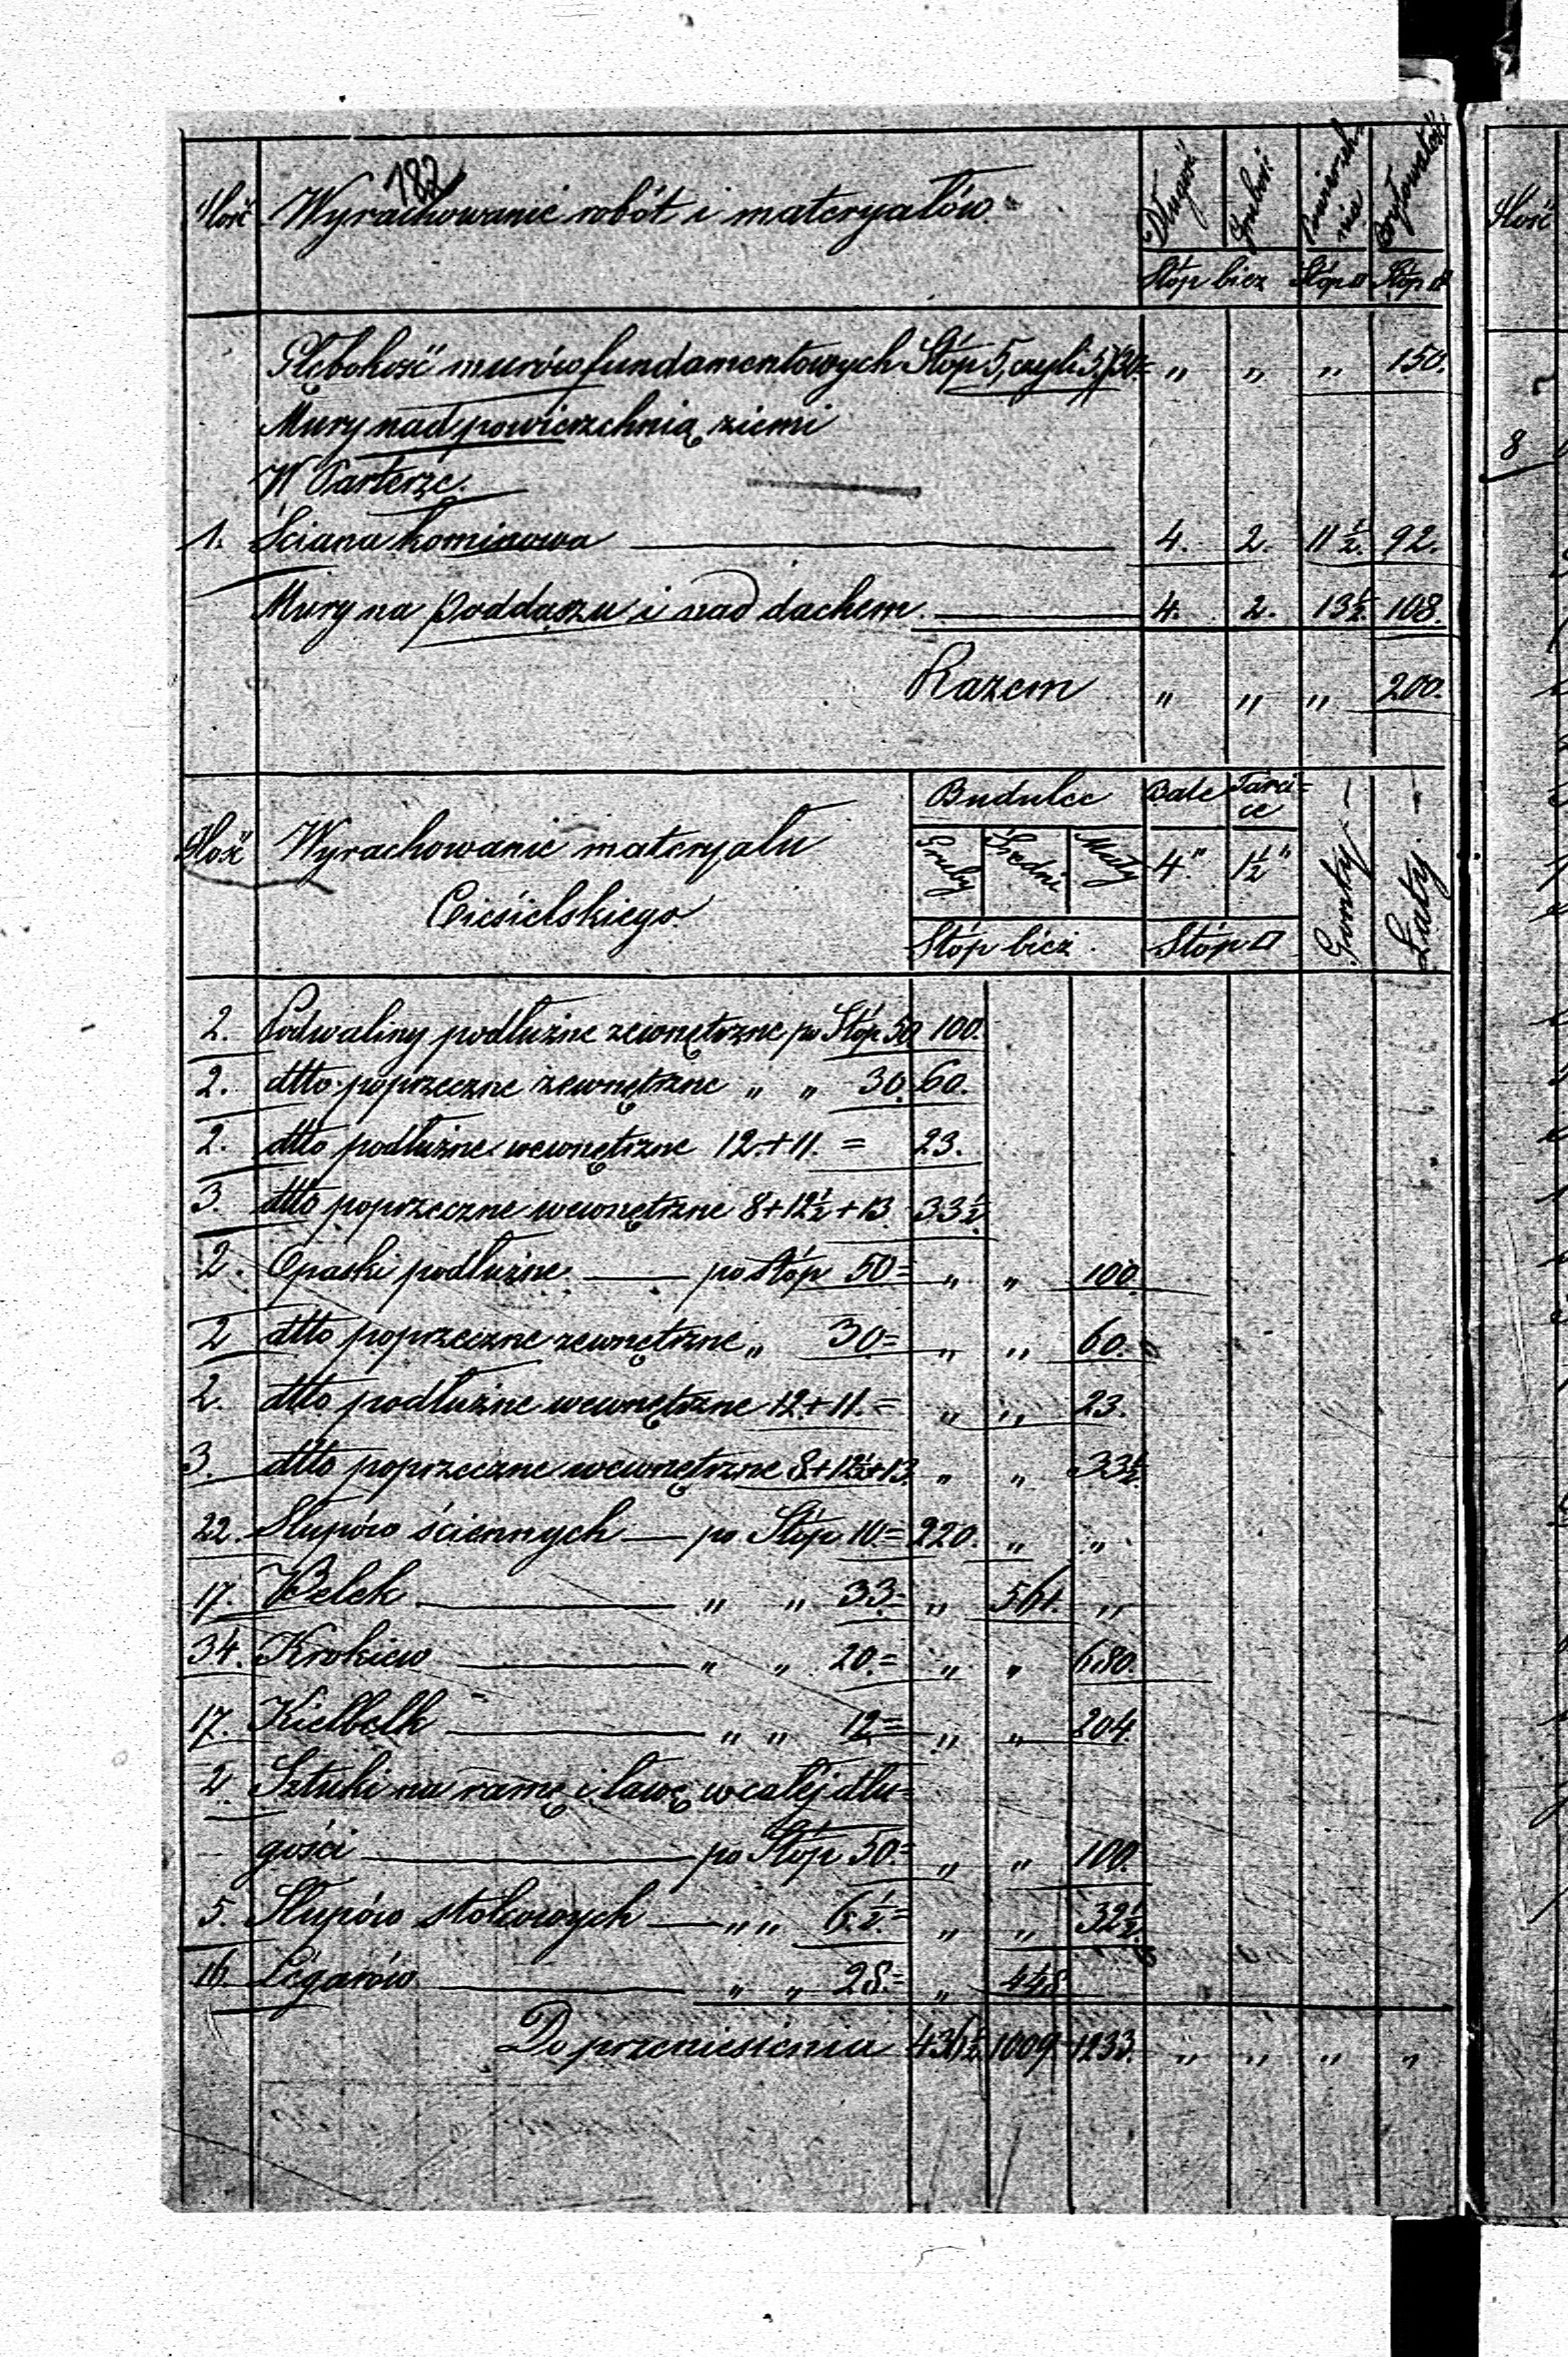 182
Ilość Wyrachowanie robót i materyałów Długość Grubość Powierzchnia Bryłowatość
Stóp bież Stóp □ Stóp
Głębokość murów fundamentowych Stóp 5, czyli 5×30= " " " 150.
Mury nad powierzchnią ziemi
W Parterze.
1. Ściana kominowa 4. 2. 11½. 92.
Mury na poddaszu i nad dachem. 4. 2. 13½. 108.
Razem " " " 200.
Ilość Wyrachowanie materyału Budulec Bale Tarcice Gonty Łaty
Ciesielskiego Gruby Średni Mały 4" 1½"
Stóp bież. Stóp □
2. Podwaliny podłużne zewnętrzne po Stóp 50 100.
2. dtto poprzeczne zewnętrzne " " 30. 60.
2. dtto podłużne wewnętrzne 12.+11. = 23.
3. dtto poprzeczne wewnętrzne 8+12½+13. 33½
2. Opaski podłużne po stóp 50= " " 100.
2 dtto poprzeczne zewnętrzne " 30.= " " 60.
2. dtto podłużne wewnętrzne 12.+11.= " " 23.
3. dtto poprzeczne wewnętrzne 8+12½+13. " " 33½.
22. Słupów ściennych po Stóp 10.= 220. " "
17. Belek " " 33.= " 561. "
34. Krokiew " " 20.= " " 680.
17. Kielbelk " " 12= " " 204.
2. Sztuki na ramę i ławę w całej dłu=
gości po Stóp 50.= " " 100.
5. Słupów stolcowych " " 6½.= " " 32½.
16 Légarów " " 28.= " 448
Do przeniesienia 436½ 1009 1233. " " " "
Ilość
8